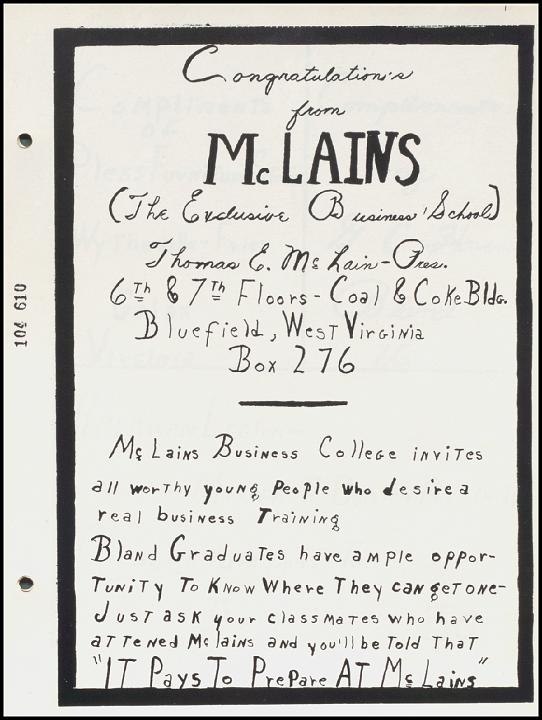 Congratulation's
from
McLAINS
(The Exclusive Business' School)
Thomas E. McLain-Pres.
6th & 7th Floors - Coal & Coke Bldg.
Bluefield, West Virginia
Box 276
McLains Business College invites
all worthy young People who desire a
real business Training
Bland Graduates have ample oppor-
Tunity To Know Where They can get one-
Just ask your classmates who have
attened McLains and you'll be Told That
"IT Pays To Prepare AT McLains"
104 610